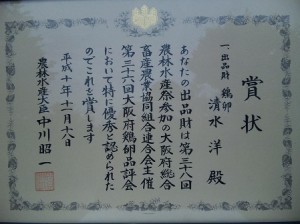 賞状
一、出品財 鶏卵
清水洋殿
あなたの出品財は第三八回
農林水産祭参加の大阪府総合
畜産農業協同組合連合会主催
第三十六回大阪府鶏卵品評会
において特に優秀と認められた
のでこれを賞します
平成十年十一月十八日
農林水産大臣 中川昭一